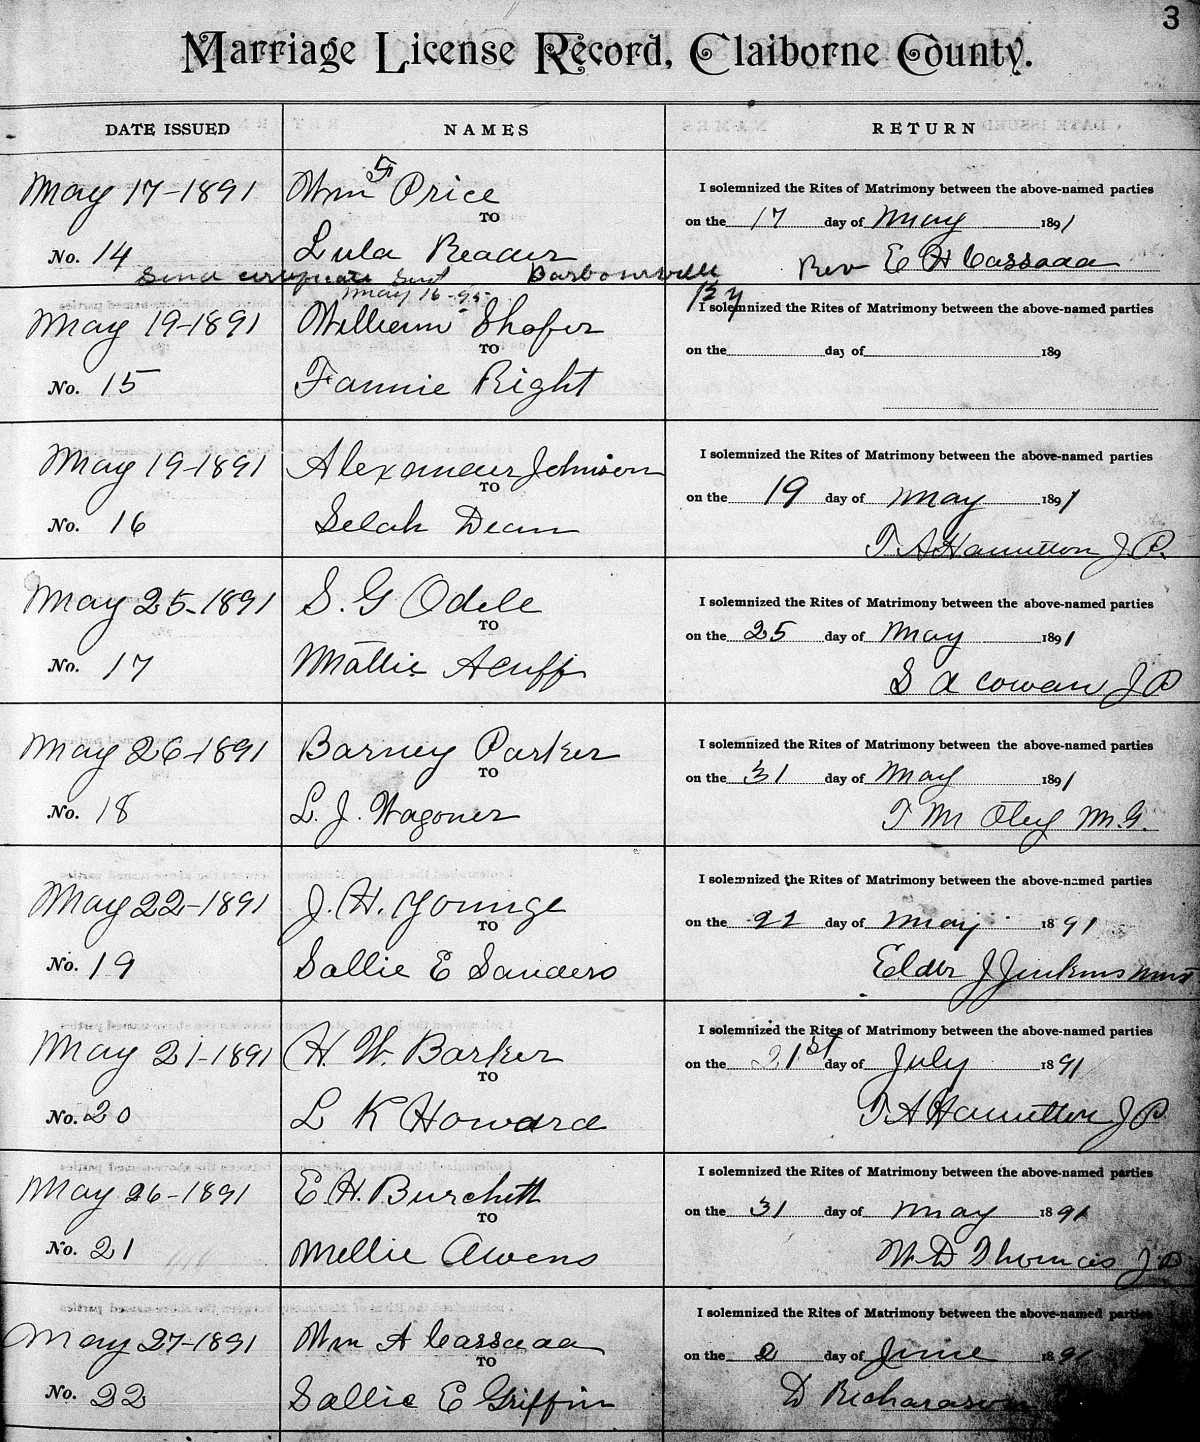 3
Marriage License Record, Claiborne County.
DATE ISSUED NAMES RETURN
May 17-1891 Wm F Price I solemnized the Rites of Matrimony between the above-named parties
TO on the 17 day of May 1891
No. 14 Lula Reader Rev E H Cassada
Send certificate Sent Barbourville
May 16-95- Ky
May 19-1891 William Shofer I solemnized the Rites of Matrimony between the above-named parties
TO on the day of 189
No. 15 Fannie Right
May 19-1891 Alexander Johnson I solemnized the Rites of Matrimony between the above-named parties
TO on the 19 day of May 1891
No. 16 Selah Dean
T A Hamilton J.P.
May 25-1891 S. G Odele I solemnized the Rites of Matrimony between the above-named parties
TO on the 25 day of May 1891
No. 17 Mattie Acuff S A Cowan J P
May 26-1891 Barney Parker I solemnized the Rites of Matrimony between the above-named parties
TO on the 31 day of May 1891
No. 18 L. J. Wagoner T M M.G.
May 22-1891 J. H. Younge I solemnized the Rites of Matrimony between the above-named parties
TO on the 22 day of May 1891
No. 19 Sallie E Sanders Elder J Jenkins
May 21-1891 H. W. Barker I solemnized the Rites of Matrimony between the above-named parties
TO on the 21st day of July 1891
No. 20 L K Howard T A Hamilton J P
May 26-1891 E. H. Burchett I solemnized the Rites of Matrimony between the above-named parties
TO on the 31 day of May 1891
No. 21 Mellie Owens W. D Thomas J P
May 27-1891 Wm A Cassada I solemnized the Rites of Matrimony between the above-named parties
TO on the 2 day of June 1891
No. 22 Sallie E Griffin D Richardson